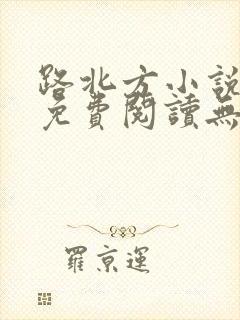 路北方小說
免費閱讀無
羅京運